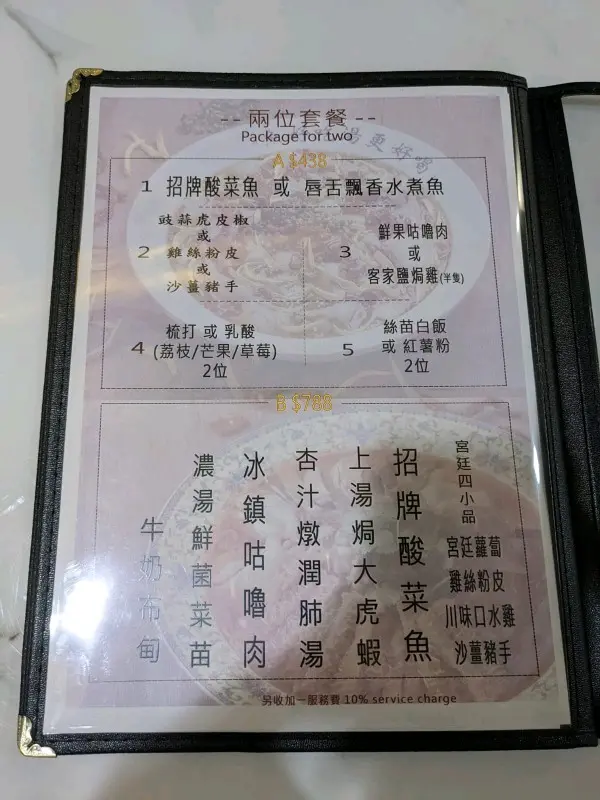 -- 兩位套餐 --
Package for two
A $438
1 招牌酸菜魚 或 唇舌飄香水煮魚
2 豉蒜虎皮椒
或
雞絲粉皮
或
沙薑豬手
3 鮮果咕嚕肉
或
客家鹽焗雞(半隻)
4 梳打 或 乳酸
(荔枝/芒果/草莓)
2位
5 絲苗白飯
或 紅薯粉
2位
B $788
宮廷四小品
宮廷蘿蔔
雞絲粉皮
川味口水雞
沙薑豬手
招牌酸菜魚
上湯焗大虎蝦
杏汁燉潤肺湯
冰鎮咕嚕肉
濃湯鮮菌菜苗
牛奶布甸
另收加一服務費 10% service charge